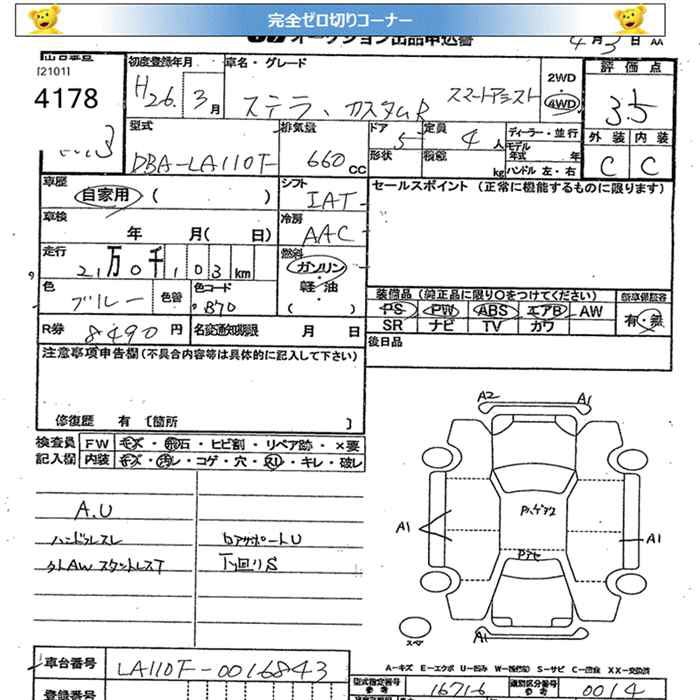 完全ゼロ切りコーナー
オークション出品申込書 4月3日
[2101]
4178
初度登録年月 車名・グレード
H26. 3月 ステラ、カスタムR スマートアシスト
2WD
4WD
評価点
3.5
型式 排気量 ドア 定員 ディーラー・並行
DBA-LA110F 660cc 5 4人
形状 積載 kg モデル年式 年
ハンドル 左・右
外装 内装
C C
車歴 自家用 ( )
シフト IAT
セールスポイント (正常に機能するものに限ります)
車検 年 月( 日)
冷房 AAC
走行 21万0千103km
燃料 ガソリン・軽油
( )
色 ブルー 色替 色コード B70
装備品 (純正品に限り○をつけてください)
PS PW ABS エアB AW
SR ナビ TV カワ
新車保証書
有・無
R券 8490円 名変通知期限 月 日
後日品
注意事項申告欄(不具合内容等は具体的に記入して下さい)
修復歴 有 [箇所 ]
検査員記入欄
FW キズ・飛石・ヒビ割・リペア跡・×要
内装 キズ・汚レ・コゲ・穴・スリ・キレ・破レ
A.U
ハンドルスレ
タトAWスタットレスT
ロアサポートU
下回りS
A2 A1
A1 A1
A1
スペア
A-キズ E-エクボ U-凹み W-補修(跡) S-サビ C-腐食 XX-交換済
車台番号 LA110F-0016843
型式指定番号 参考 16716
類別区分番号 参考 0014
登録番号